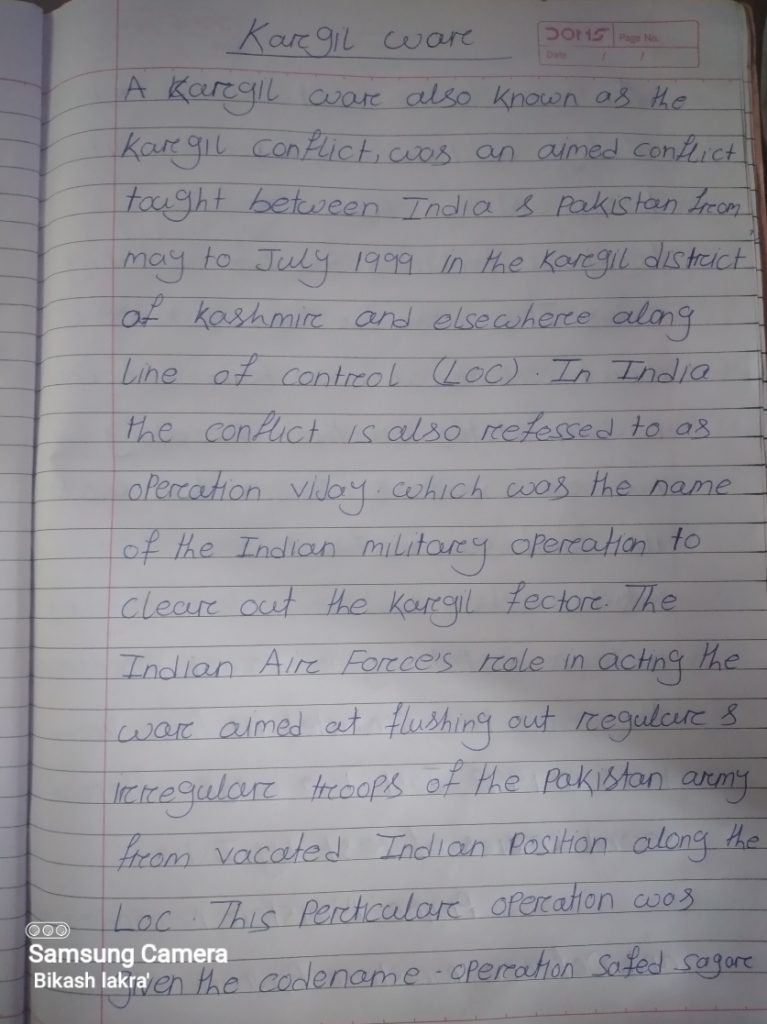 Kargil war
DOMS
Page No.
Date / /
A Kargil war also known as the
Kargil conflict, was an aimed conflict
fought between India & Pakistan from
may to July 1999 in the Kargil district
of Kashmir and elsewhere along
Line of control (LOC). In India
the conflict is also refessed to as
operation vijay. which was the name
of the Indian military operation to
clear out the Kargil fector. The
Indian Air Force's role in acting the
war aimed at flushing out regular &
irregular troops of the Pakistan army
from vacated Indian Position along the
LOC. This Perticular operation was
given the codename - operation safed sagar
Samsung Camera
Bikash lakra'